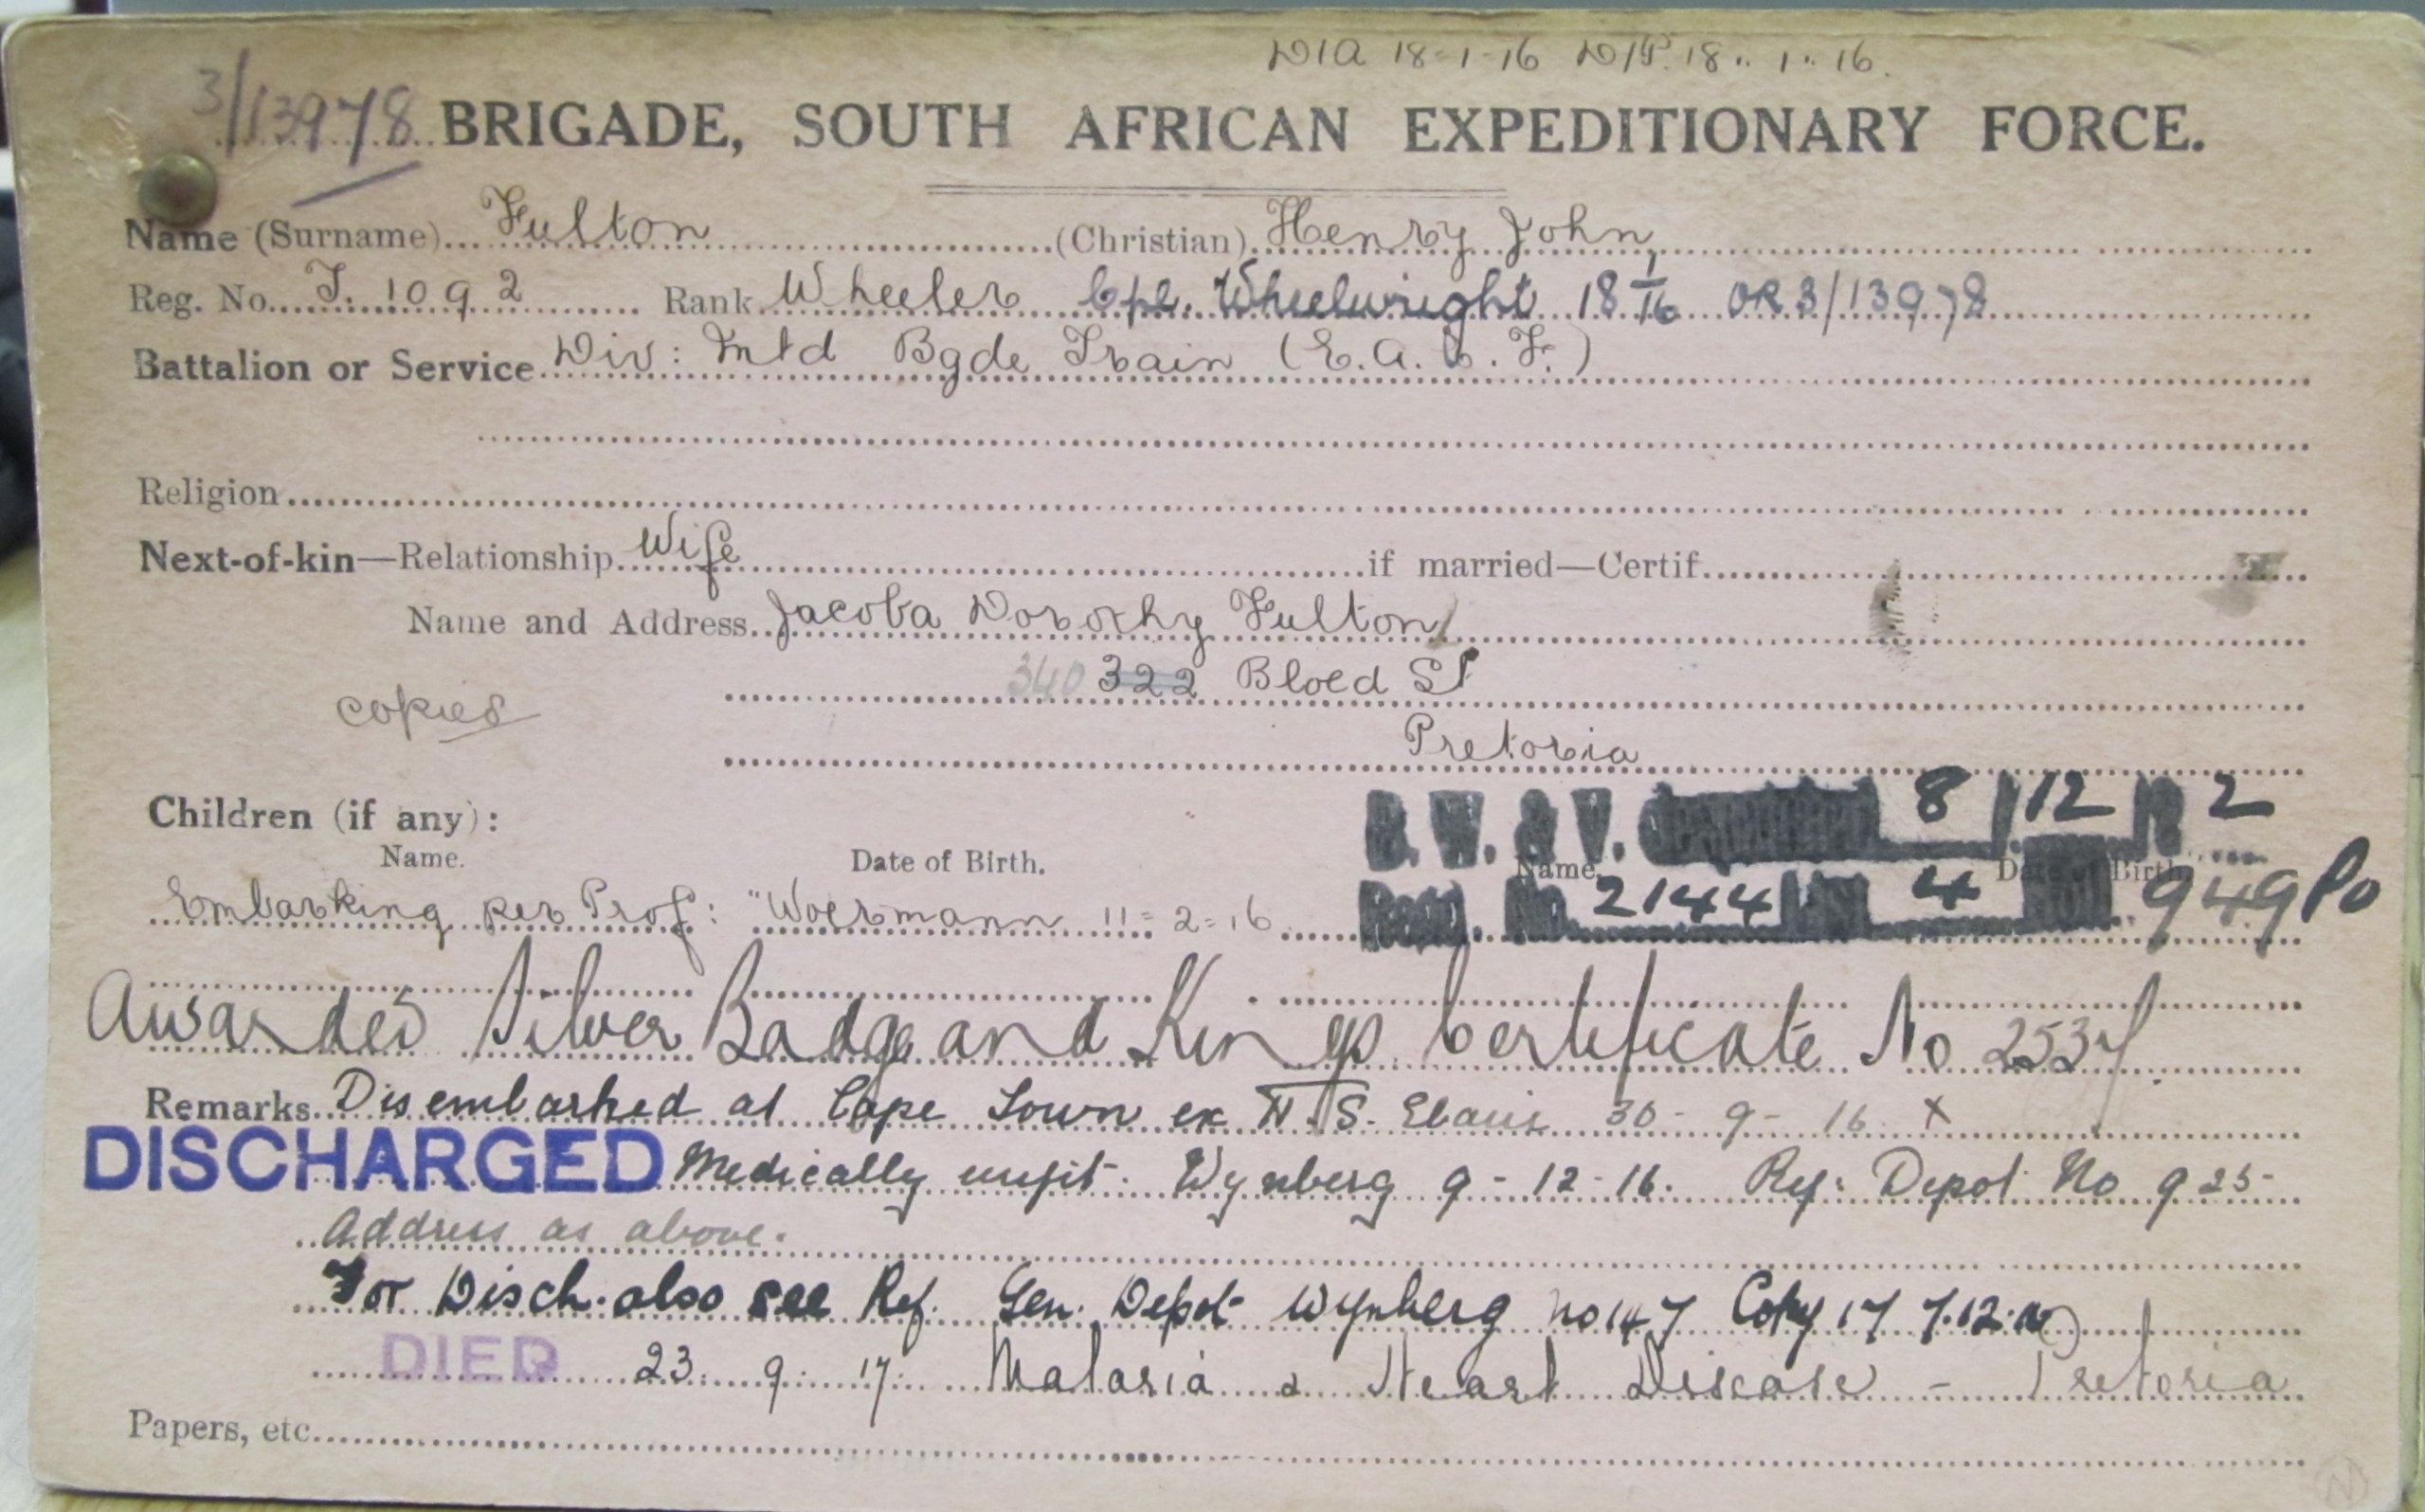 DIA 18-1-16 D/P. 18.. 1.. 16.
3/13978 BRIGADE, SOUTH AFRICAN EXPEDITIONARY FORCE.
Name (Surname) Fulton (Christian) Henry John
Reg. No. T. 1092 Rank Wheeler Cpl. Wheelwright 18/1/16 OR 3/13978
Battalion or Service Div: Mtd Bgde Train (E.A.E.F.)
Religion
Next-of-kin—Relationship Wife if married—Certif.
Name and Address Jacoba Dorothy Fulton
340 322 Bloed St
copies
Pretoria
Children (if any):
B. W. & V. 8/12/ 2
Name. Date of Birth. Name. Date of Birth.
Embarking per Prof: "Woermann 11=2=16
Regd. No. 2144 4 949 Po
Awarded Silver Badge and Kings Certificate No 2537
Remarks Disembarked at Cape Town ex H.S. Ebani 30-9-16 X
DISCHARGED Medically unfit. Wynberg 9-12-16. Ref: Depot No 925-
Address as above.
For Disch. also see Ref. Gen. Depot Wynberg no 147 Copy 17 7.12.16
DIED 23. 9. 17. Malaria & Heart Disease - Pretoria
Papers, etc.